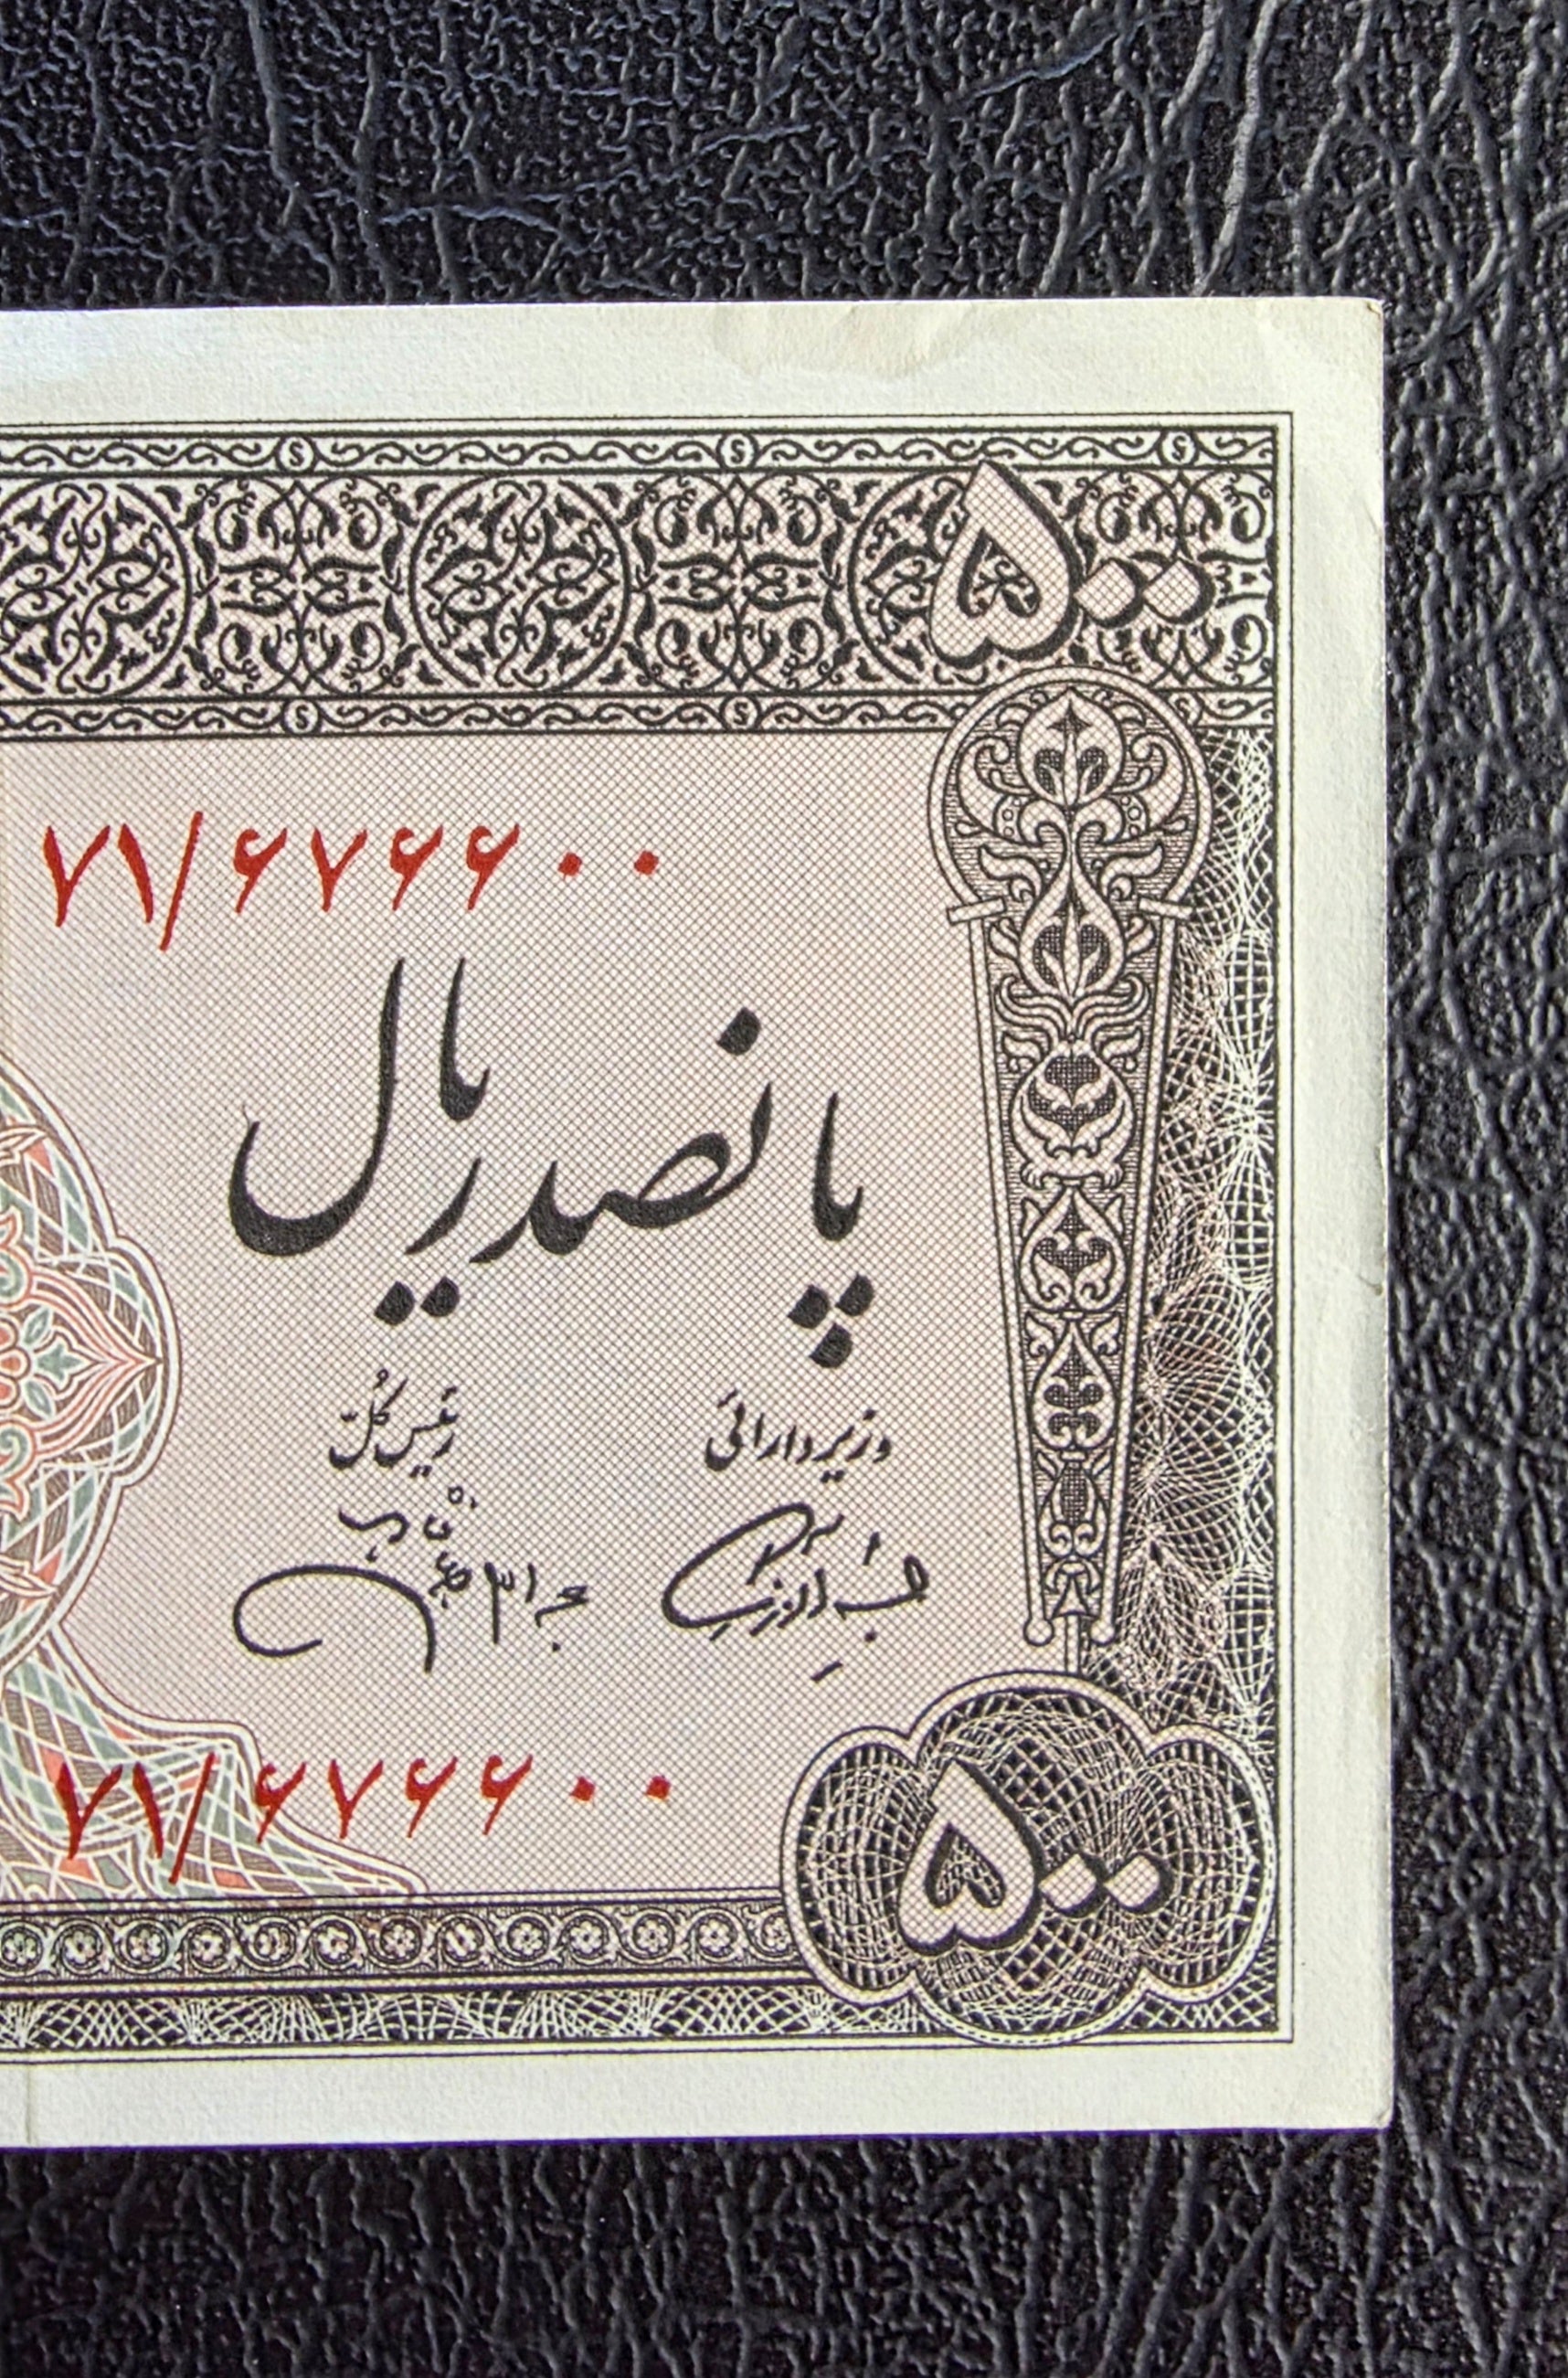 ۵۰۰
۷۱/۶۷۶۶۰۰
پانصد ریال
وزیر دارائی
رئیس کلّ
۷۱/۶۷۶۶۰۰
۵۰۰